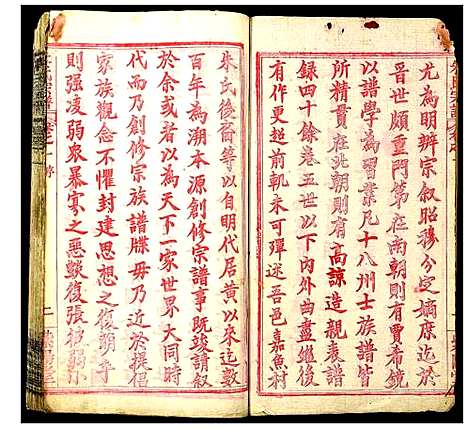 尤為明辨宗敘昭穆分定嫡庶迄於
晉世頗重門第在南朝則有賈希鏡
以譜學為習業凡十八州士族譜皆
所精責在北朝則有高諒造親表譜
錄四十餘卷五世以下內外曲盡繼後
有作更超前軌未可殫述吾邑嘉魚村
朱氏後裔等以自明代居黃以來迄數
百年為溯本源創修宗譜事既竣請敘
於余或以為天下一家世界大同時
代而乃創修宗族譜牒毋乃近於提倡
家族觀念不懼封建思想之復萌乎
則强凌弱眾暴寡之惡燄復張扨弱小